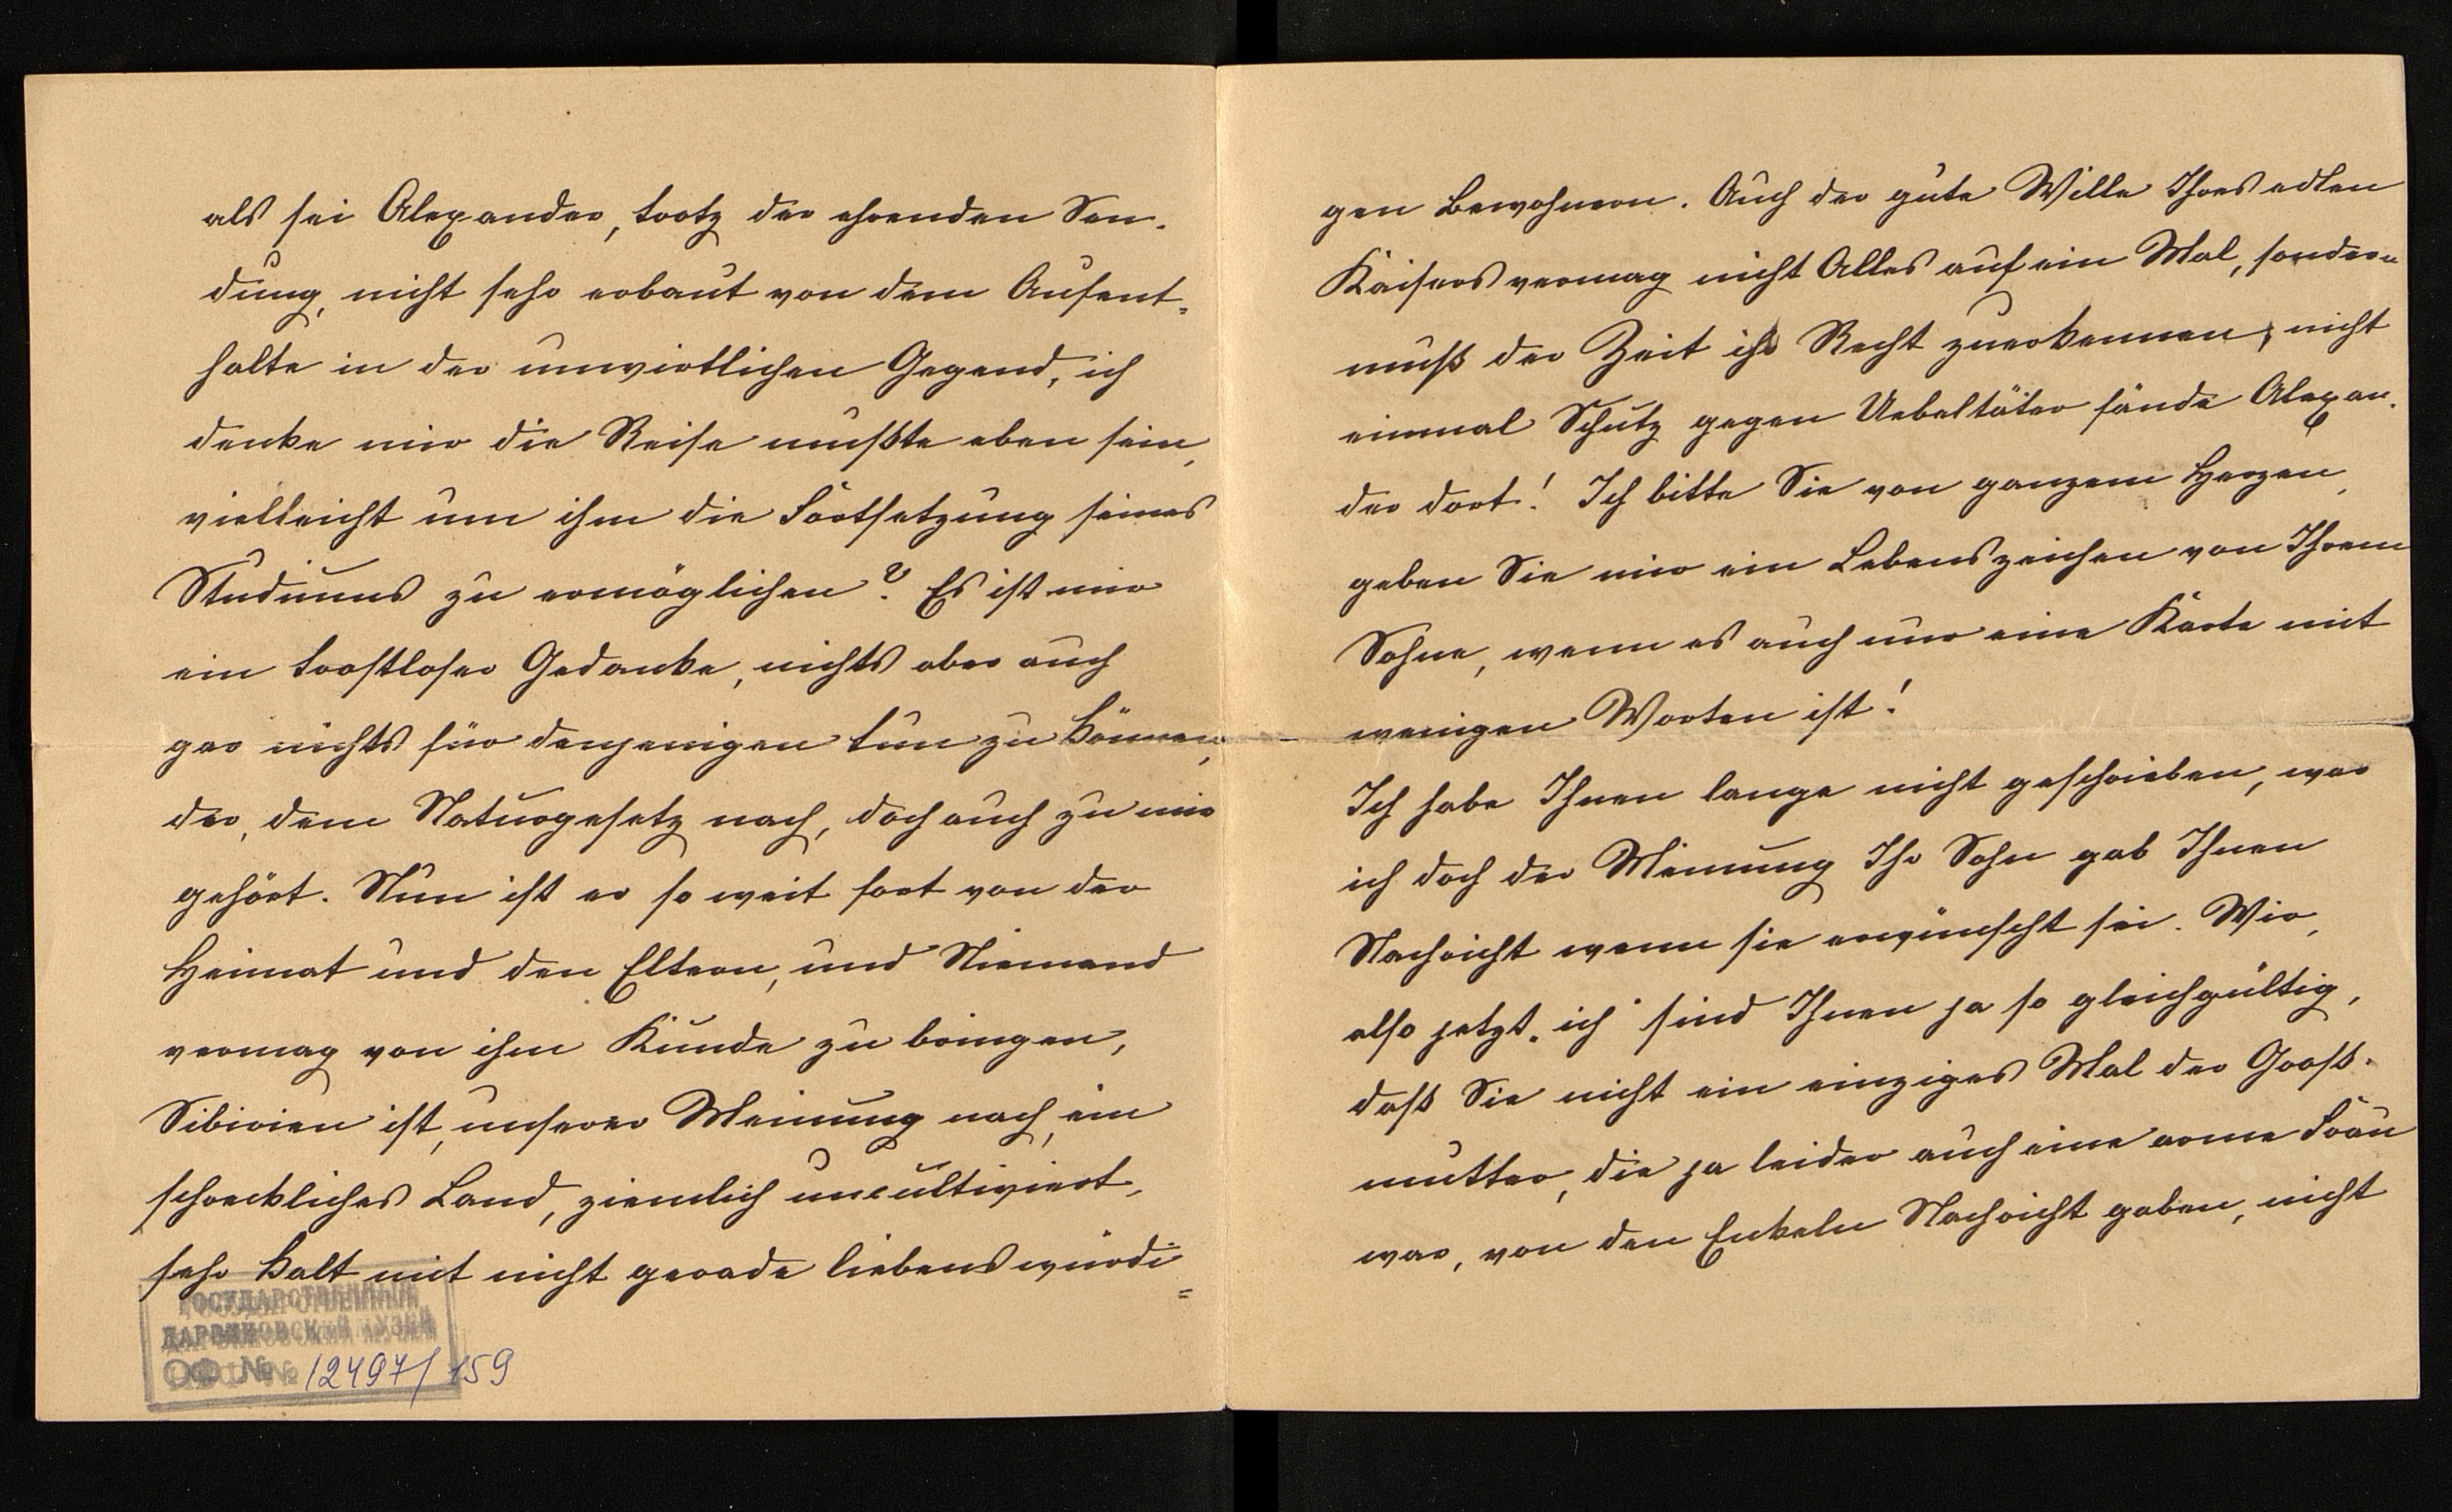 als sei Alexander, trotz der ehrenden Sen-
dung, nicht sehr erbaut von dem Aufent-
halte in der unwirtlichen Gegend, ich
denke mir die Reise mußte eben sein,
vielleicht um ihm die Fortsetzung seines
Studiums zu ermöglichen? Es ist mir
ein trostloser Gedanke, nichts aber auch
gar nichts für denjenigen tun zu können,
der, dem Naturgesetz nach, doch auch zu mir
gehört. Nun ist er so weit fort von der
Heimat und den Eltern, und Niemand
vermag von ihm Kunde zu bringen,
Sibirien ist, unserer Meinung nach, ein
schreckliches Land, ziemlich uncultiviert,
sehr kalt mit nicht gerade liebenswürdi=
ГОСУДАРСТВЕННЫЙ
ДАРВИНОВСКИЙ МУЗЕЙ
ОФ № 12497/159
gen Bewohnern. Auch der gute Wille Ihres edlen
Kaisers vermag nicht Alles auf ein Mal, sondern
muß der Zeit ihr Recht zuerkennen, nicht
einmal Schutz gegen Uebeltäter fände Alexan-
der dort! Ich bitte Sie von ganzem Herzen,
geben Sie mir ein Lebenszeichen von Ihrem
Sohne, wenn es auch nur eine Karte mit
wenigen Worten ist!
Ich habe Ihnen lange nicht geschrieben, war
ich doch der Meinung Ihr Sohn gab Ihnen
Nachricht wenn sie erwünscht sei. Wir,
also jetzt „ich“ sind Ihnen ja so gleichgültig,
daß Sie nicht ein einziges Mal der Groß-
mutter, die ja leider auch eine arme Frau
war, von den Enkeln Nachricht gaben, nicht